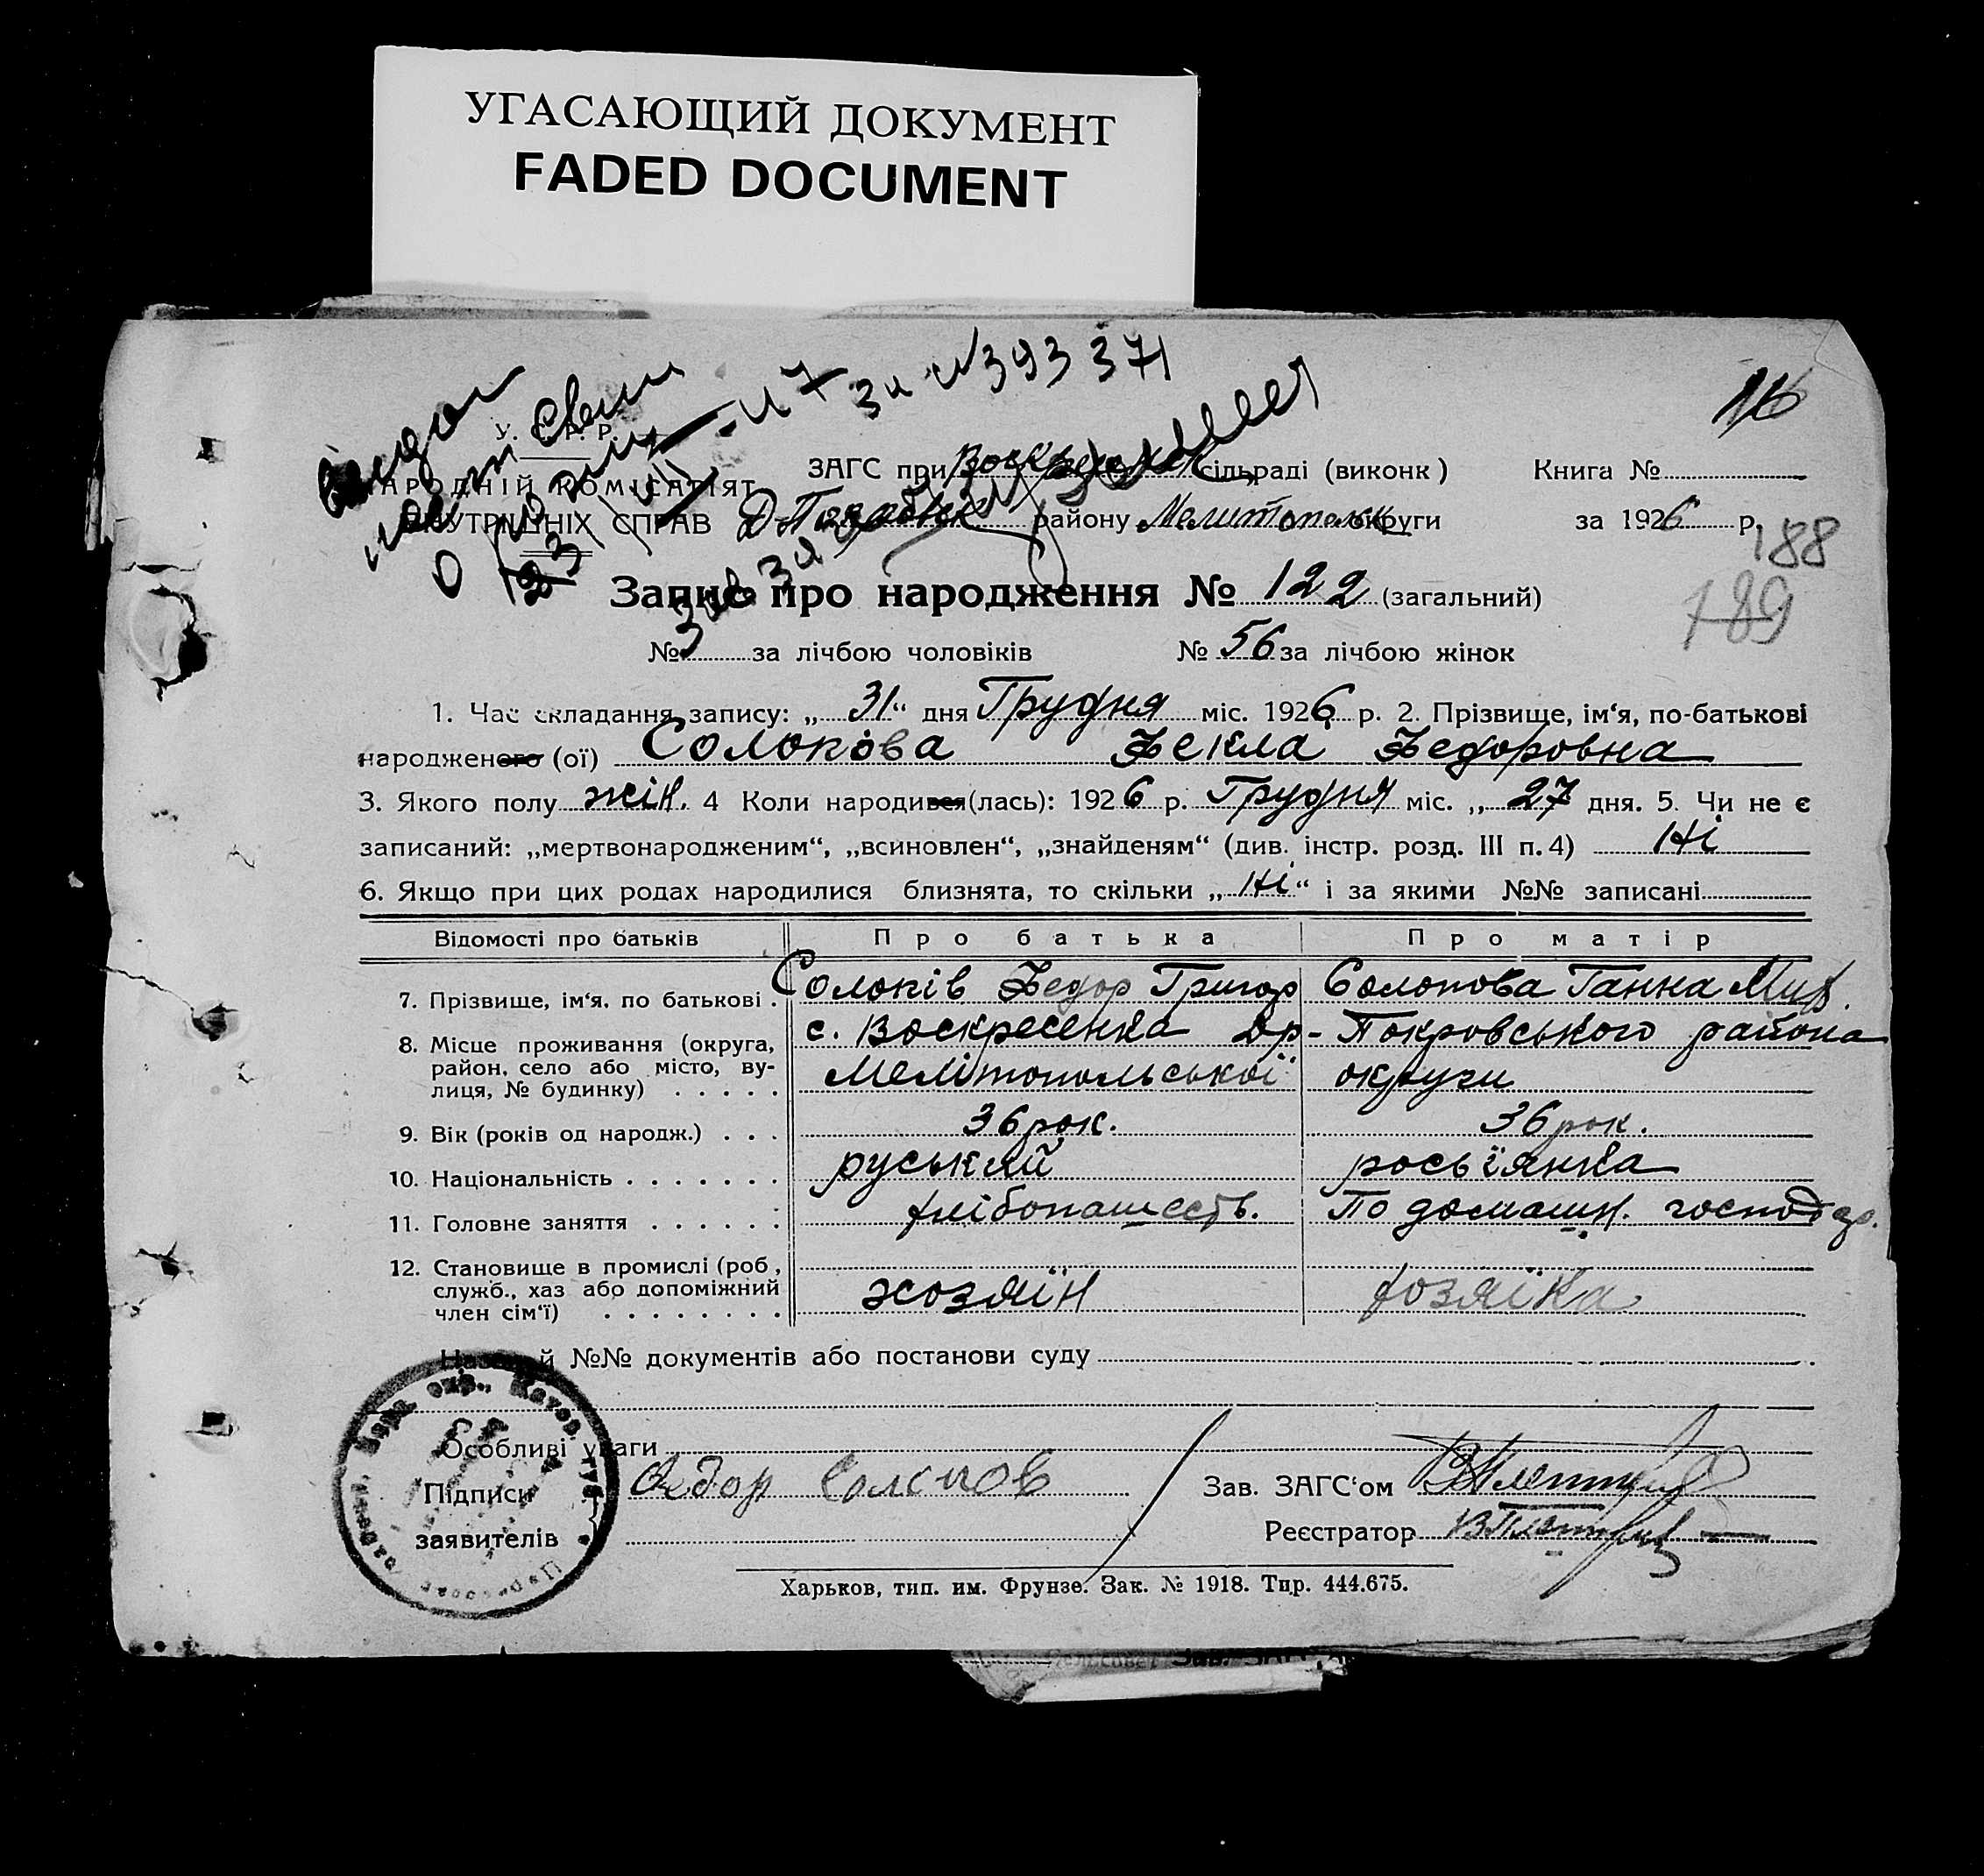 УГАСАЮЩИЙ ДОКУМЕНТ
FADED DOCUMENT
за № 393371
116
У. С. Р. Р.
НАРОДНІЙ КОМІСАРІЯТ
ВНУТРІШНІХ СПРАВ
ЗАГС при сільраді (виконк) Книга №
району Мелитопольск округи за 1926 р.
188
789
Запис про народження № 122 (загальний)
№ за лічбою чоловіків № 56 за лічбою жінок
1. Час складання запису: „31“ дня Грудня міс. 1926 р. 2. Прізвище, ім‘я, по-батькові
народженого (ої) Солопова Фекла Федоровна
3. Якого полу жін. 4 Коли народився(лась): 1926 р. Грудня міс. „27 дня. 5. Чи не є
записаний: „мертвонародженим“, „всиновлен“, „знайденям“ (див. інстр. розд. III п. 4) Ні
6. Якщо при цих родах народилися близнята, то скільки „Ні“ і за якими №№ записані
Відомості про батьків Про батька Про матір
7. Прізвище, ім‘я, по батькові . Солопів Федор Григор Солопова Ганна
8. Місце проживання (округа, с. Воскресенка Др-Покровського района
район, село або місто, ву-
лиця, № будинку) . . . . . Мелітопольської округи
9. Вік (років од народж.) . . . 36 рок. 36 рок.
10. Національність . . . . . . . руський росьіянка
11. Головне заняття . . . . . . хлібопашеств. По домашн. господар.
12. Становище в промислі (роб.,
служб., хаз або допоміжний хозяїн хозяїка
член сім‘ї) . . . . . . . .
й №№ документів або постанови суду
Особливі уваги
Підписи Федор Солопов Зав. ЗАГС‘ом
заявителів Реєстратор
Харьков, тип. им. Фрунзе. Зак. № 1918. Тир. 444.675.